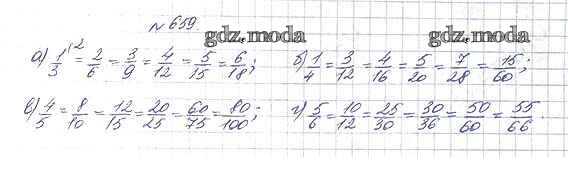 № 659.
gdz.moda gdz.moda
а) 1/3 (2 = 2/6 = 3/9 = 4/12 = 5/15 = 6/18; б) 1/4 = 3/12 = 4/16 = 5/20 = 7/28 = 15/60;
в) 4/5 = 8/10 = 12/15 = 20/25 = 60/75 = 80/100; г) 5/6 = 10/12 = 25/30 = 30/36 = 50/60 = 55/66.